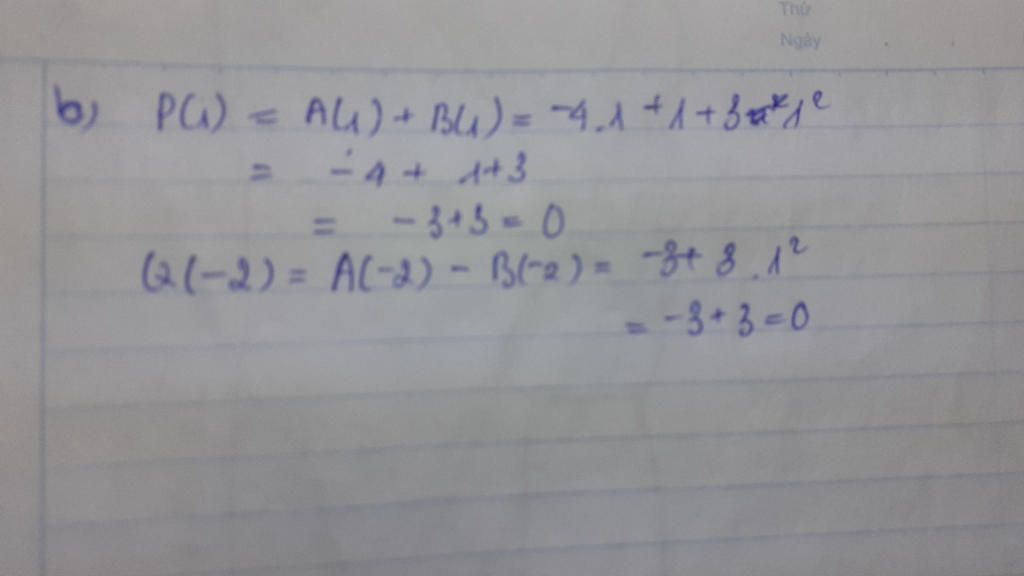 Thứ
Ngày
b) P(1) = A(1) + B(1) = -4.1 + 1 + 3 1²
= - 4 + 1+3
= - 3+3 = 0
Q(-2) = A(-2) - B(-2) = -3+ 3 .1²
= -3+3=0